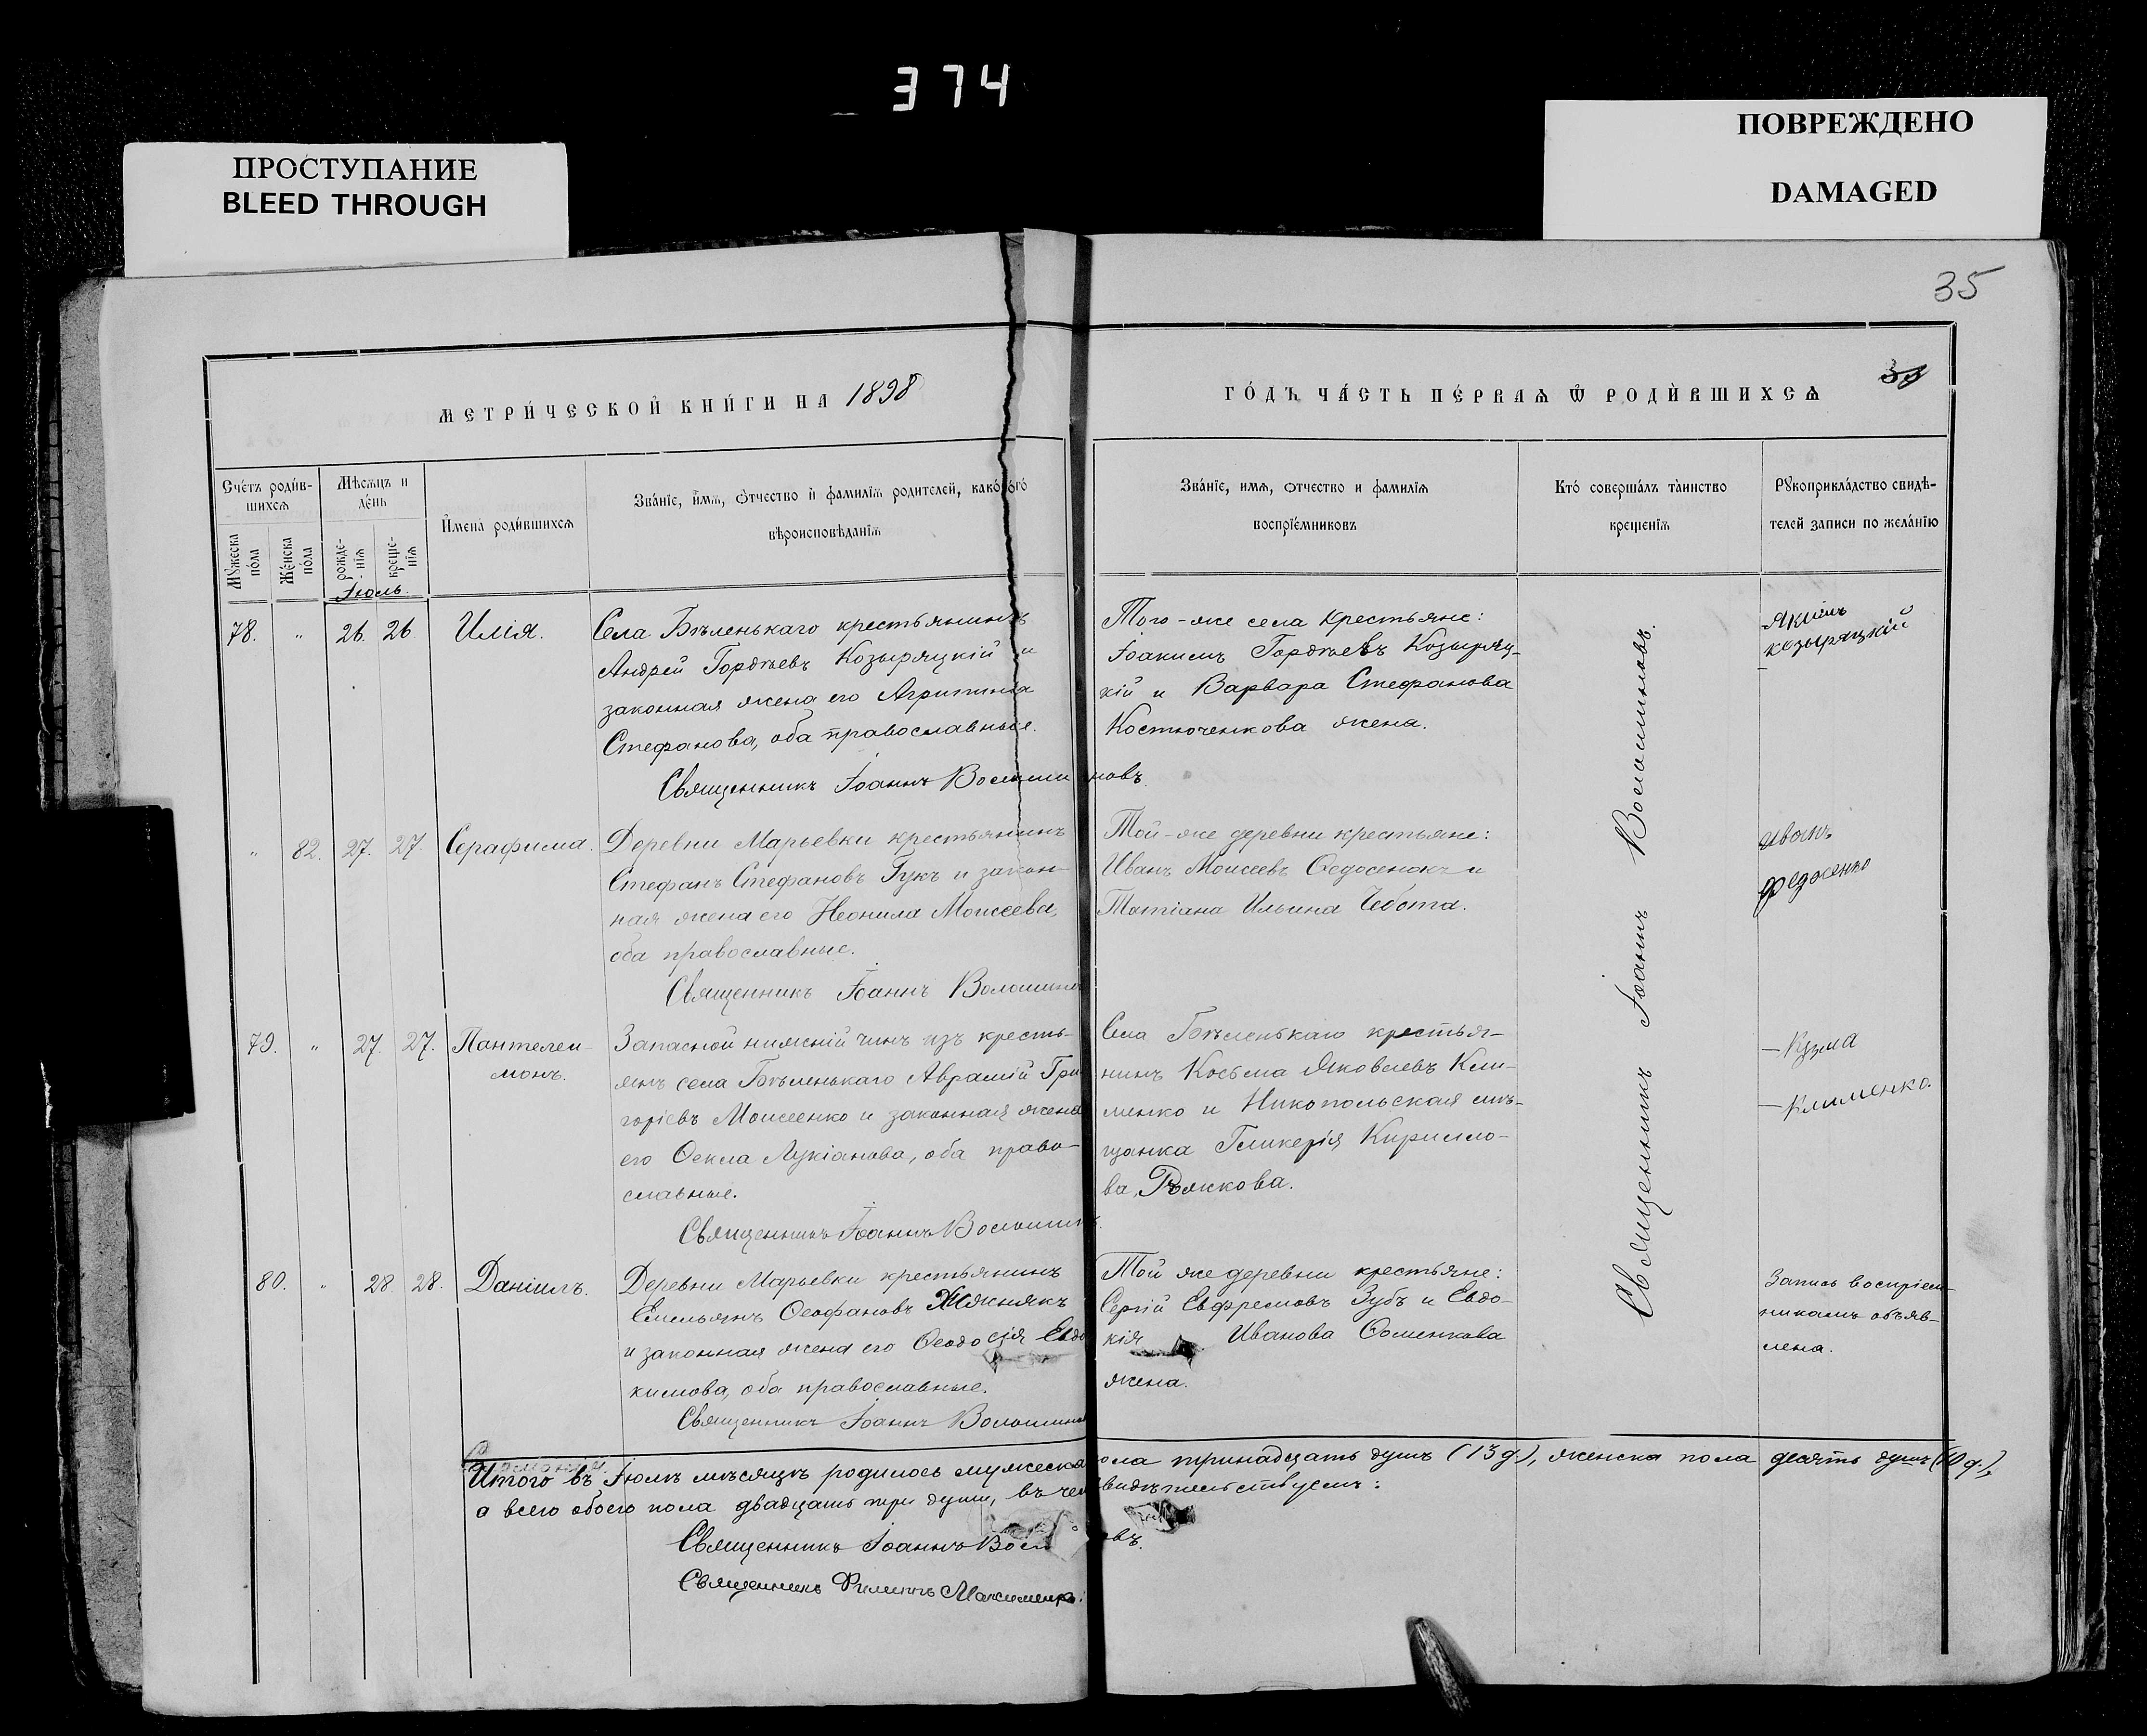 374
ПРОСТУПАНИЕ
BLEED THROUGH
ПОВРЕЖДЕНО
DAMAGED
35
МЕТРИ́ЧЕСКОЙ КНИ́ГИ НА 1898
ГО́ДЪ ЧА́СТЬ ПЕ́РВАѦ Ѿ РОДИ́ВШИХСѦ
Сче́тъ роди́в-
шихсѧ
Мꙋ́жеска
по́ла
Же́нска
по́ла
Мѣсѧцъ и
де́нь
рожде-
нїѧ
креще-
нїѧ
Имена̀ роди́вшихсѧ
Зва́нїе, и́мѧ, ѻ́тчество и фамилїѧ родителей, како́гѡ
вѣроисповѣ́данїѧ
Зва́нїе, имѧ, ѻтчество и фамилїѧ
воспрїе́мниковъ
Кто́ соверша́лъ та̀инство
креще́нїѧ
Рꙋкоприкла́дство свидѣ-
телей записи по жела́нїю
Іюль.
78. " 26. 26 Илія.
Села Бѣленькаго крестьянинъ
Андрей Гордѣевъ Козыряцкій и
законная жена его Агрипина
Стефанова, оба православные.
Священникъ Іоаннъ Волошиновъ.
Того-же села крестьяне:
Іоакимъ Гордѣевъ Козыряц-
кій и Варвара Стефанова
Костюченкова жена.
Якимъ
козыряцкій
" 82. 27. 27. Серафима.
Деревни Марьевки крестьянинъ
Стефанъ Стефановъ Гукъ и закон-
ная жена его Неонила Моисеева,
оба православные.
Священникъ Іоаннъ Волошинов
Той-же деревни крестьяне:
Иванъ Моисеевъ Ѳедосенокъ и
Татіана Ильина Чебота.
иванъ
79. " 27. 27. Пантелеи-
монъ.
Запасной нижній чинъ изъ кресть-
янъ села Бѣленькаго Аврамій Гри
горіевъ Моисеенко и законная жена
его Ѳекла Лукіанова, оба право-
славные.
Священникъ Іоаннъ Волошинъ
Села Бѣленькаго крестья-
нинъ Косьма Яковлевъ Кли-
менко и Никопольская мѣ-
щанка Гликерія Кирилло-
ва
—Кузма
—Клименко.
80. " 28 28. Даніилъ.
Деревни Марьевки крестьянинъ
Емельянъ Ѳеофановъ
и законная жена его Ѳеодосія Евдо
кимова, оба православные.
Священникъ Іоаннъ Волошинов
Той же деревни крестьяне:
Сергій Евфремовъ Зубъ и Евдо-
кія Иванова Ѳоменкова
жена.
Запись воспріем-
никамъ объяв-
лена.
Священникъ Іоаннъ Волошиновъ.
Итого въ Іюлѣ мѣсяцѣ родилось мужеска пола тринадцать душъ (13 д.), женска пола десять душъ (10 д.),
а всего обоего пола двадцать три души, въ чем свидѣтельствуемъ:
Священникъ Іоаннъ Вол овъ.
Священникъ Филиппъ Максименко.